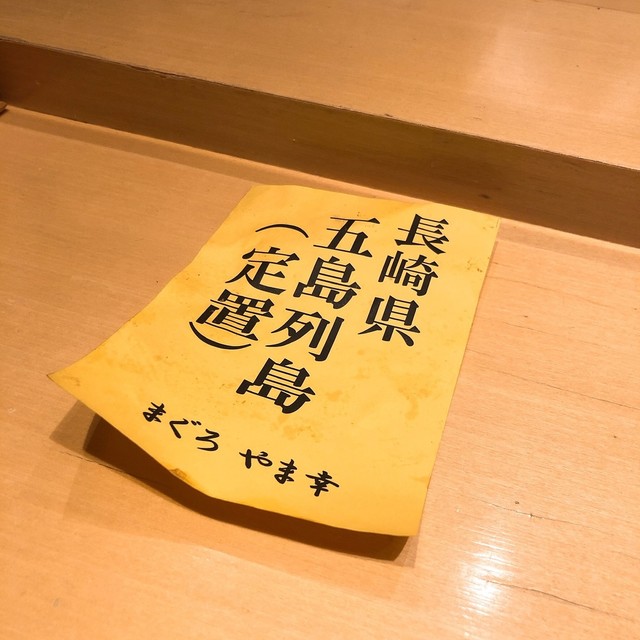 長崎県
五島列島
（定置）
まぐろ やま幸